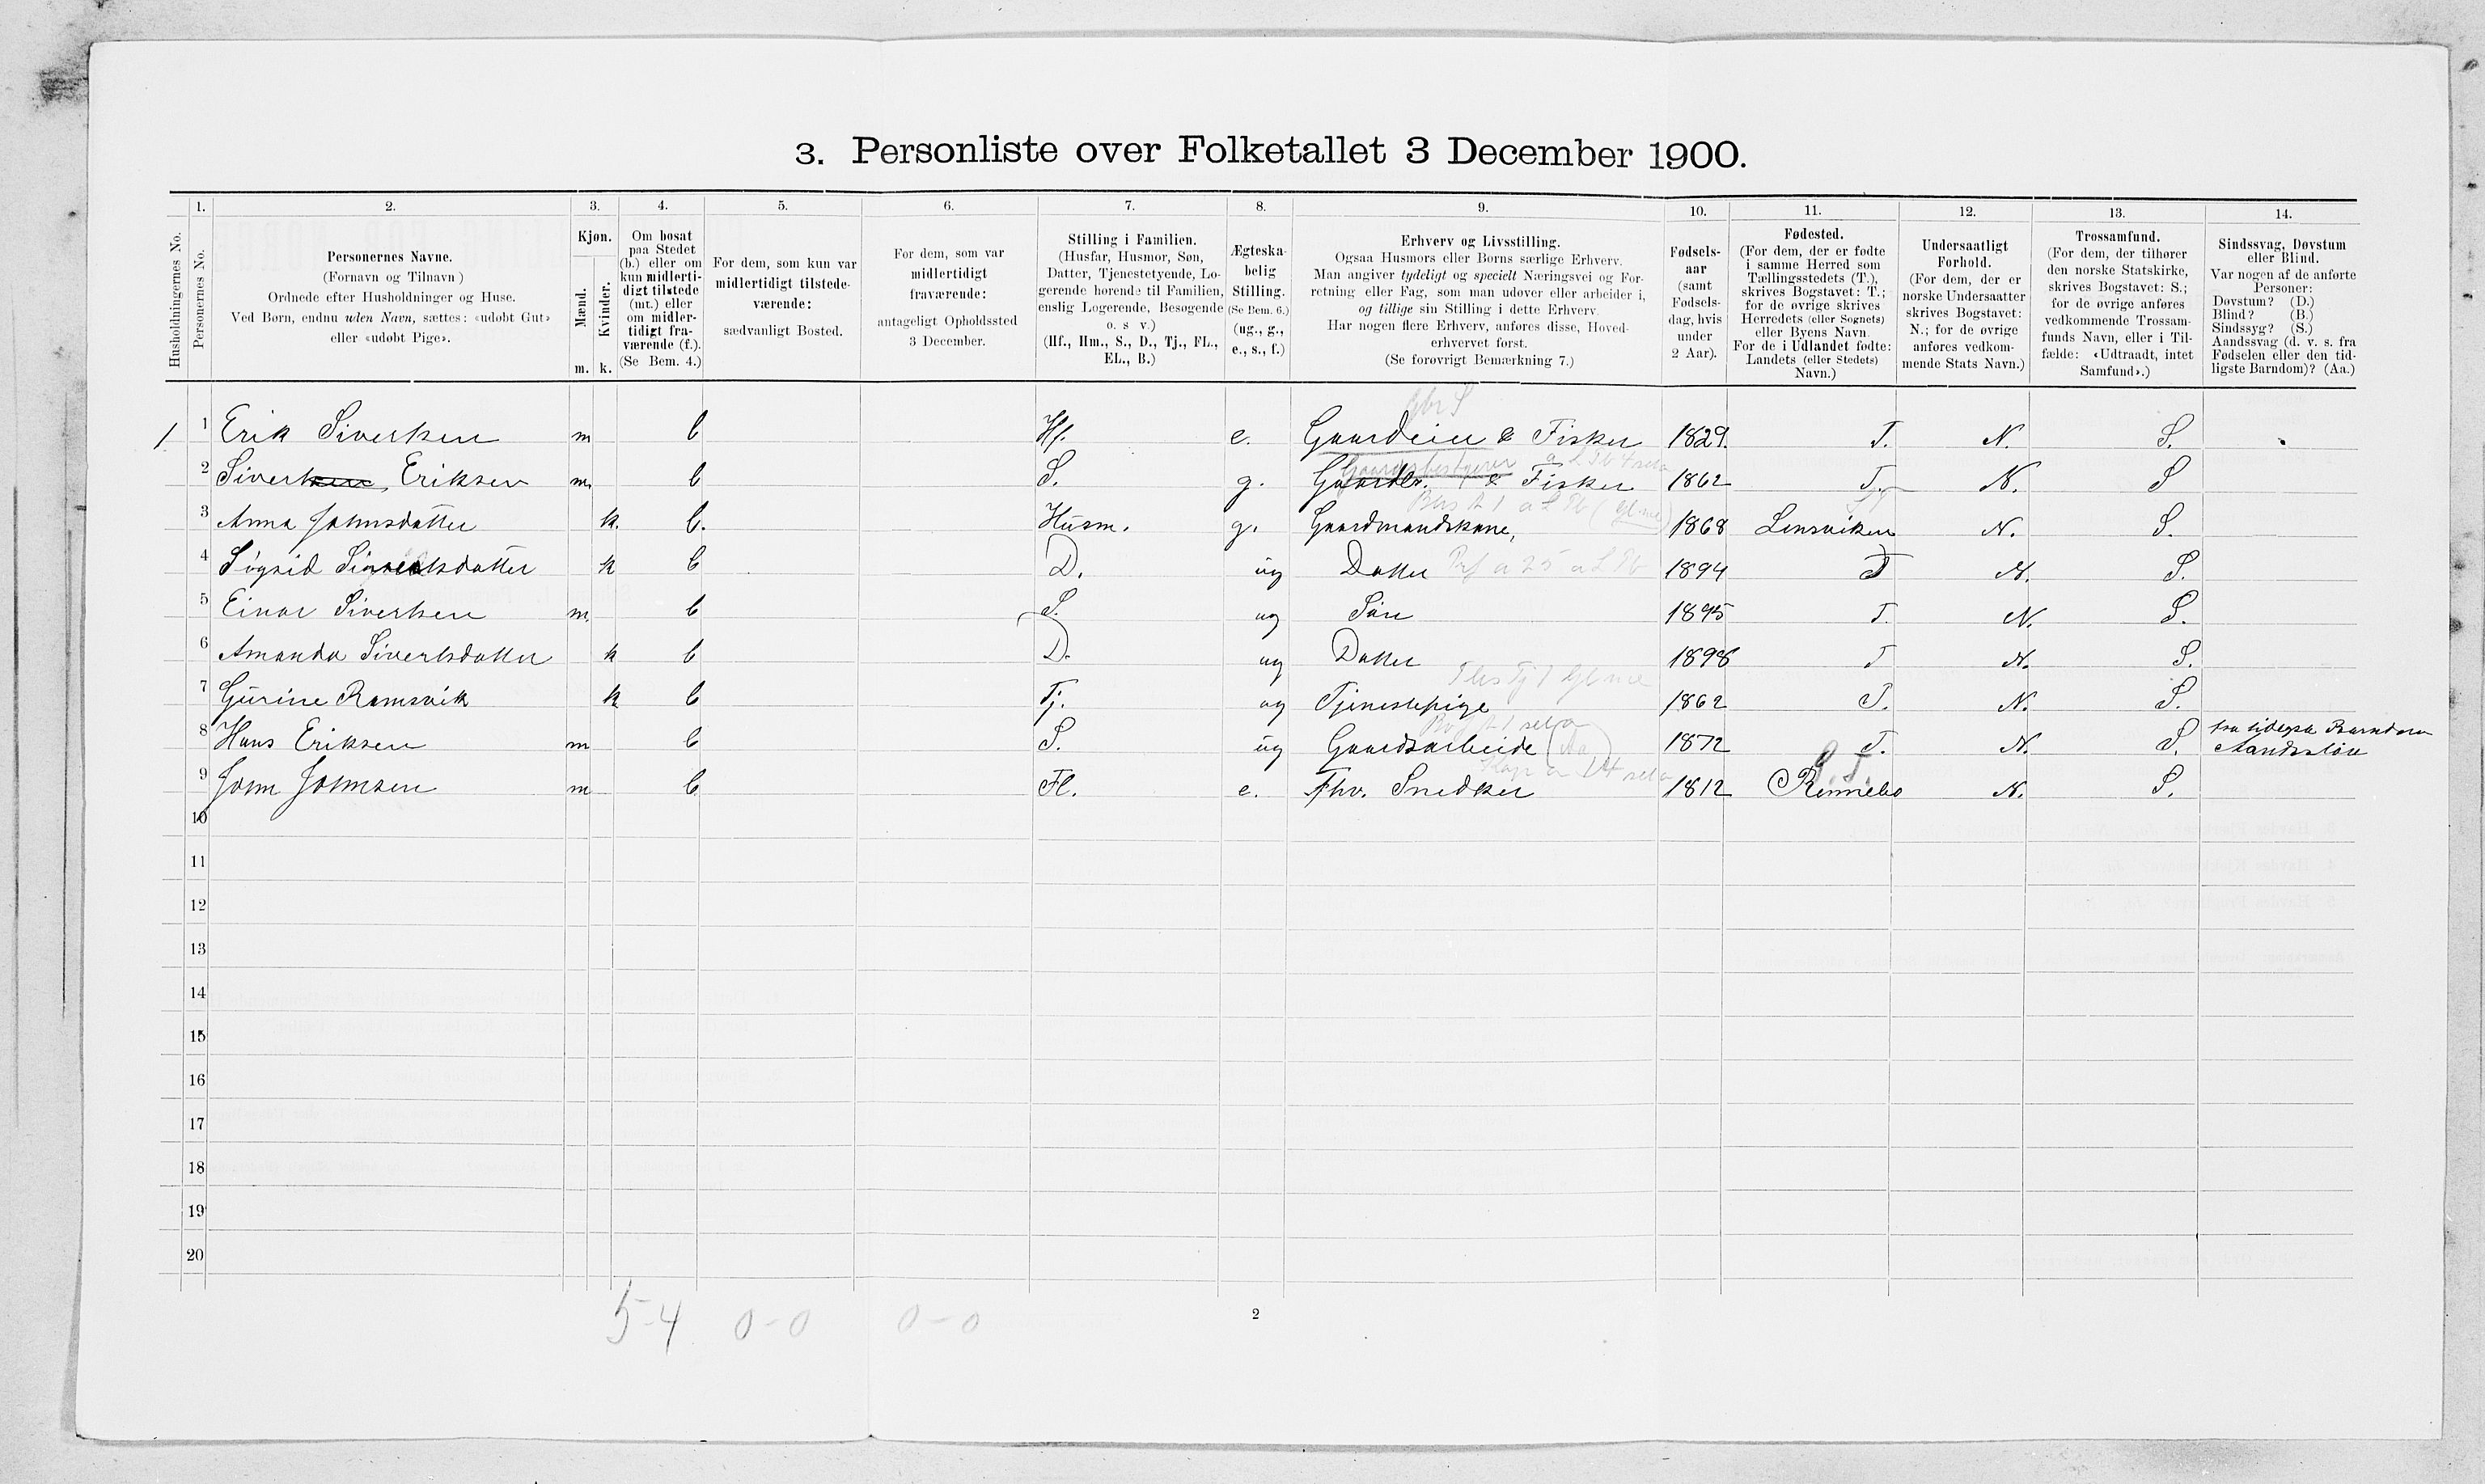 3. Personliste over Folketallet 3 December 1900.
1. 2. 3. 4. 5. 6. 7. 8. 9. 10. 11. 12. 13. 14.
Husholdningernes No.
Personernes No.
Personernes Navne.
(Fornavn og Tilnavn)
Ordnede efter Husholdninger og Huse.
Ved Børn, endnu uden Navn, sættes: «udøbt Gut»
eller «udøbt Pige».
Kjøn.
Mænd.
Kvinder.
m. k.
Om bosat
paa Stedet
(b.) eller om
kun midlerti-
digt tilstede
(mt.) eller
om midler-
tidigt fra-
værende (f.).
(Se Bem. 4.)
For dem, som kun var
midlertidigt tilstede-
værende:
sædvanligt Bosted.
For dem, som var
midlertidigt
fraværende:
antageligt Opholdssted
3 December.
Stilling i Familien.
(Husfar, Husmor, Søn,
Datter, Tjenestetyende, Lo-
gerende hørende til Familien,
enslig Logerende, Besøgende
o. s v.)
(Hf., Hm., S., D., Tj., FL.,
EL., B.)
Ægteska-
belig
Stilling.
(Se Bem. 6.)
(ug., g.,
e., s., f.)
Erhverv og Livsstilling.
Ogsaa Husmors eller Børns særlige Erhverv.
Man angiver tydeligt og specielt Næringsvei og For-
retning eller Fag, som man udøver eller arbeider i,
og tillige sin Stilling i dette Erhverv.
Har nogen flere Erhverv, anføres disse, Hoved-
erhvervet først.
(Se forøvrigt Bemærkning 7.)
Fødsels-
aar
(samt
Fødsels-
dag, hvis
under
2 Aar).
Fødested.
(For dem, der er fødte
i samme Herred som
Tællingsstedets (T.),
skrives Bogstavet: T.;
for de øvrige skrives
Herredets (eller Sognets)
eller Byens Navn.
For de i Udlandet fødte:
Landets (eller Stedets)
Navn.)
Undersaatligt
Forhold.
(For dem, der er
norske Undersaatter
skrives Bogstavet:
N.; for de øvrige
anføres vedkom-
mende Stats Navn.)
Trossamfund.
(For dem, der tilhører
den norske Statskirke,
skrives Bogstavet: S.;
for de øvrige anføres
vedkommende Trossam-
funds Navn, eller i Til-
fælde: «Udtraadt, intet
Samfund».)
Sindssvag, Døvstum
eller Blind.
Var nogen af de anførte
Personer:
Døvstum? (D.)
Blind? (B.)
Sindssyg? (S.)
Aandssvag (d. v. s. fra
Fødselen eller den tid-
ligste Barndom)? (Aa.)
1 1 Erik Sivertsen m b Hf. e. Gaardeier & Fisker 1829. T. N. S.
2 Sivertsen, Eriksen m. b S. g. Gaardbestyrer & Fisker 1862 T. N. S
3 Anna Johnsdatter k. b. Husm. g. Gaardmandskone, 1868 Lensviken N. S.
4 Sigrid Sivertsdatter k b D. ug Datter 1894 T N. S.
5 Einar Sivertsen m. b S. ug Søn 1895 T. N. S.
6 Amanda Sivertsdatter k b D. ug Datter 1898 T N. S.
7 Gurine Ramsvik k b Tj. ug Tjenestepige 1862 T. N. S.
8 Hans Eriksen m b S. ug Gaardsarbeide (Aa) 1872 T. N. S. fra tidligste Barndom
9 John Johnsen m b Fl. e. Fhv. Snedker 1812 Rennebo N. S.
10
11
12
13
14
15
16
17
18
19
20
5-4 0-0 0-0
2